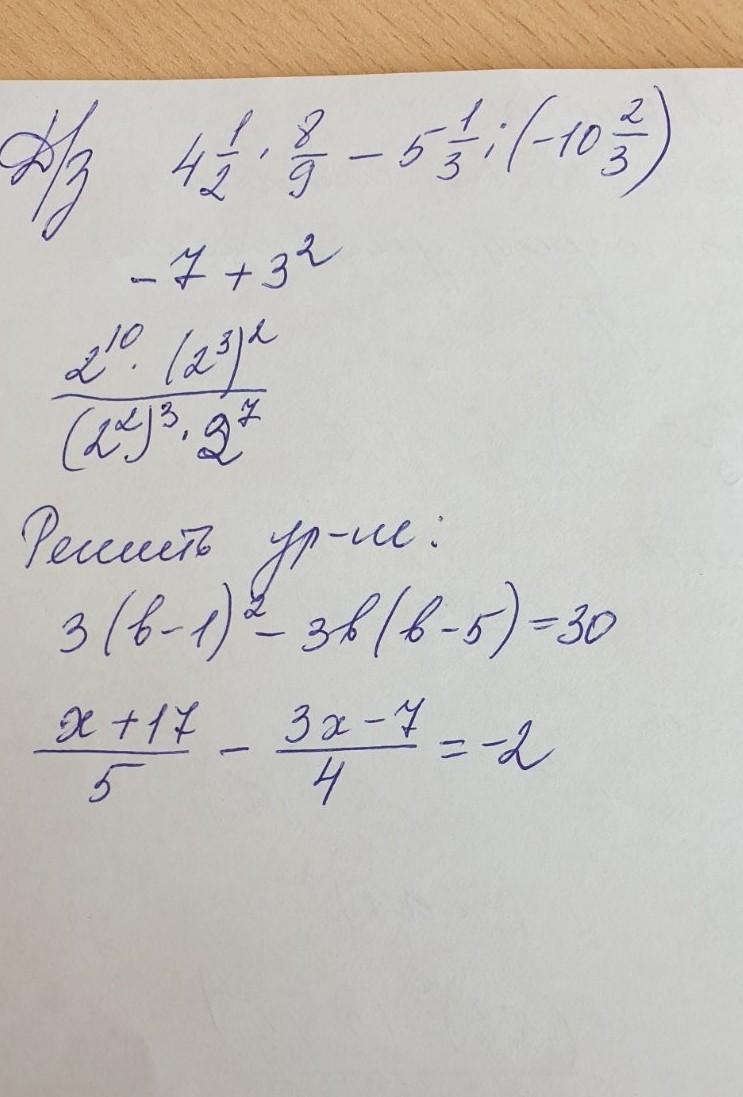 Д/з 4 1/2 · 8/9 − 5 1/3 : (−10 2/3)
−7 + 3²
2¹⁰ · (2³)²
(2²)³ · 2⁷
Решить ур-ие:
3(в−1)² − 3в(в−5) = 30
x+17/5 − 3x−7/4 = −2